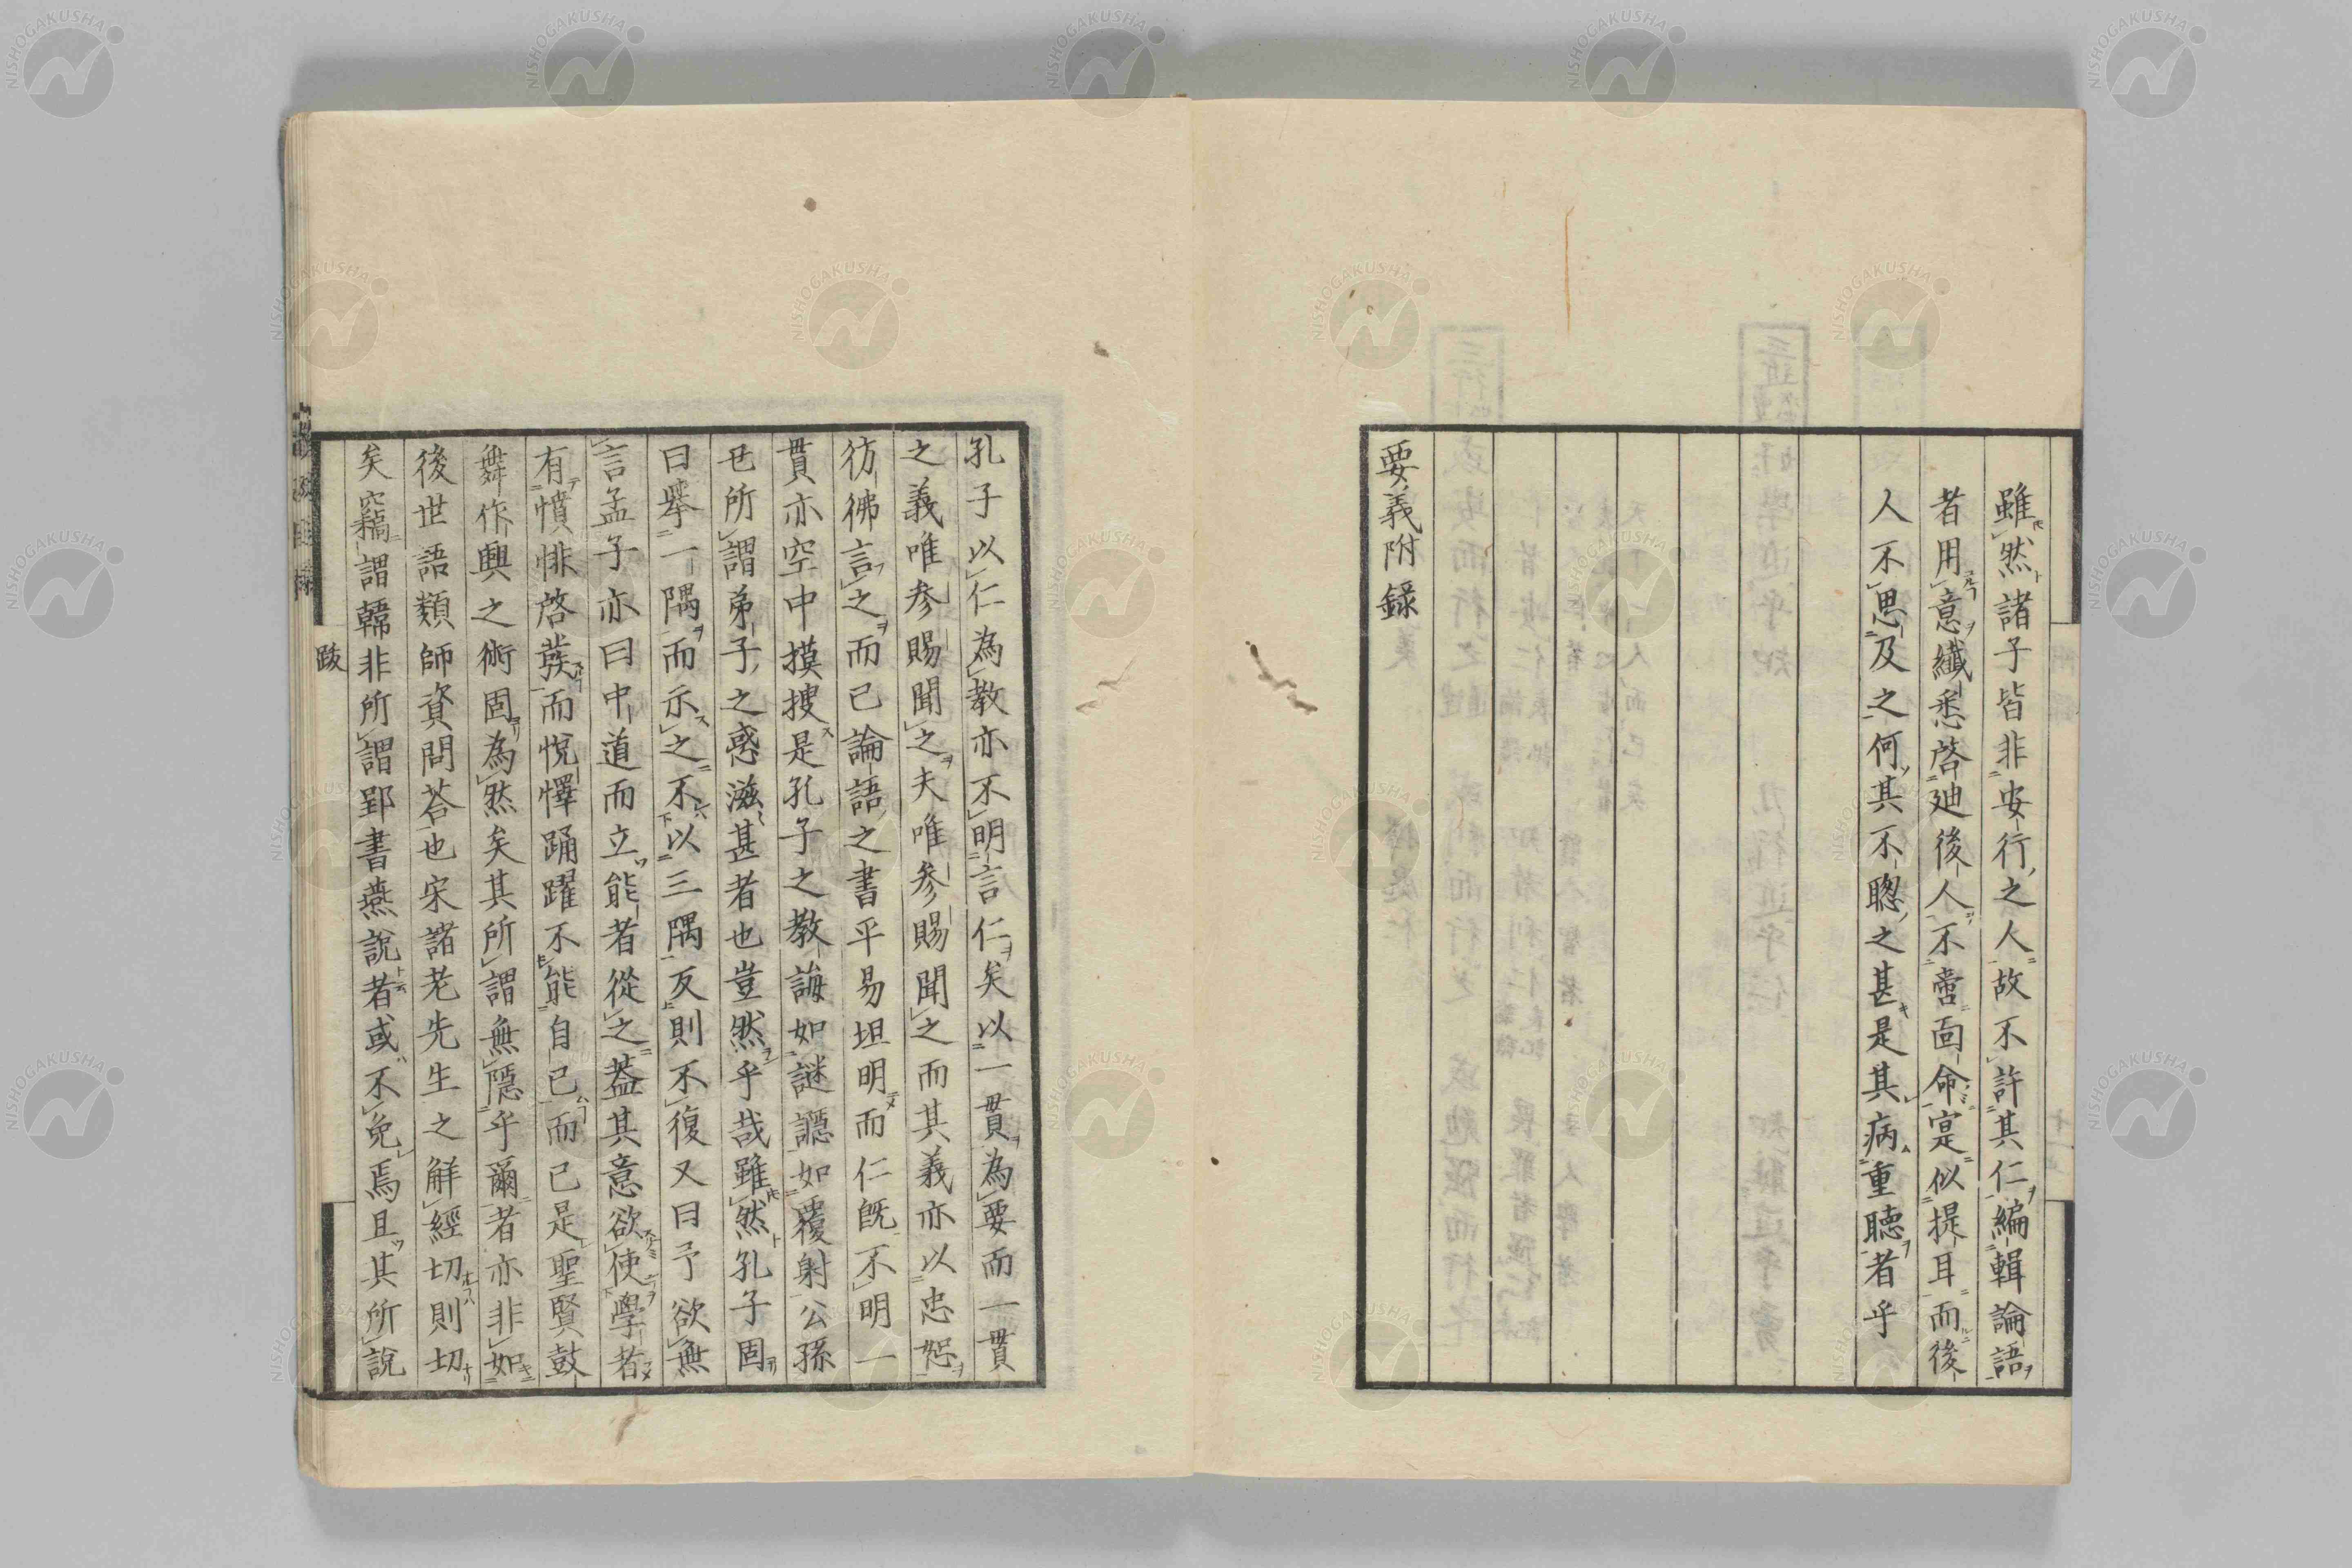 雖然諸子皆非安行之人故不許其仁編輯論語
者用意纖悉啓廸後人不啻面命寔似提耳而後
人不思及之何其不聰之甚是其病重聽者乎
要義附錄
孔子以仁為教亦不明言仁矣以一貫為要而一貫
之義唯參賜聞之夫唯參賜聞之而其義亦以忠恕
彷彿言之而已論語之書平易坦明而仁既不明一
貫亦空中摸捜是孔子之教誨如謎讔如覆射公孫
丑所謂弟子之惑滋甚者也豈然乎哉雖然孔子固
曰擧一隅而示之不以三隅反則不復又曰予欲無
言孟子亦曰中道而立能者從之葢其意欲使學者
有憤悱啓蕟而悅懌踊躍不能自已而已是聖賢鼓
舞作興之術固為然矣其所謂無隱乎爾者亦非如
後世語類師資問荅也宋諸老先生之解經切則切
矣竊謂韓非所謂郢書燕說者或不免焉且其所說
跋